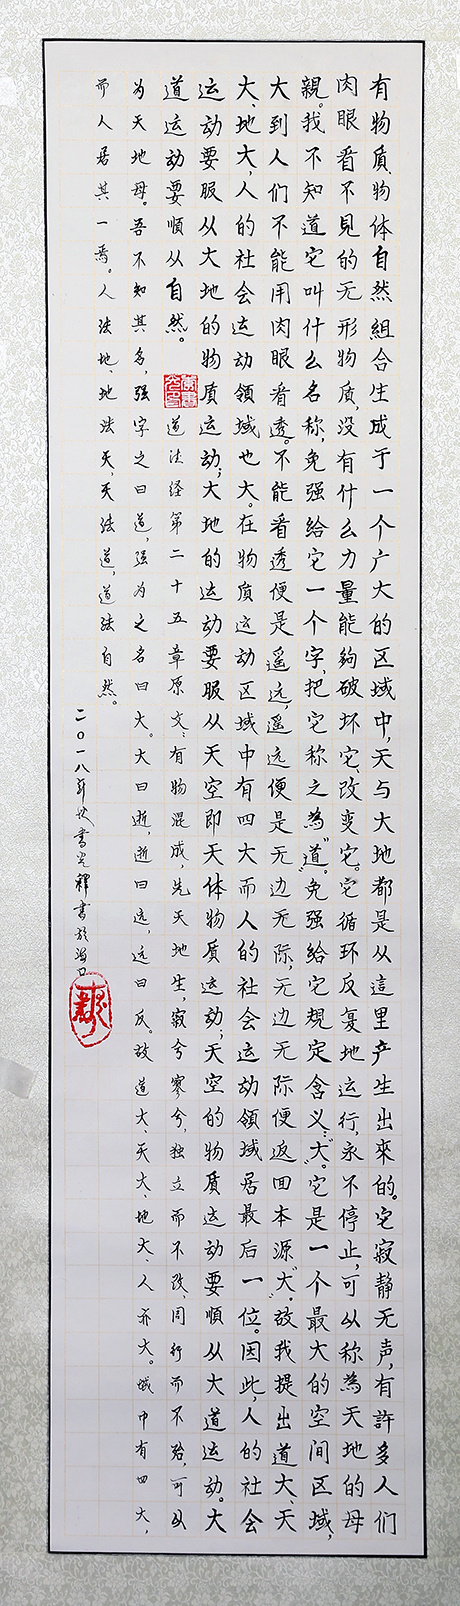 有物质、物体自然組合生成于一个广大的区域中，天与大地都是从這里产生出來的。它寂静无声，有許多人们
肉眼看不見的无形物质，没有什么力量能夠破坏它、改变它。它循环反复地运行，永不停止，可以称為天地的母
親。我不知道它叫什么名称，免强给它一个字，把它称之為“道”。免强给它規定含义：“大”。它是一个最大的空间区域，
大到人们不能用肉眼看透。不能看透便是遥远，遥远便是无边无际，无边无际便返回本源“大”。故我提出道大、天
大、地大，人的社会运动領域也大。在物质运动区域中有四大而人的社会运动領域居最后一位。因此，人的社会
运动要服从大地的物质运动；大地的运动要服从天空即天体物质运动；天空的物质运动要順从大道运动。大
道运动要順从自然。
道法经第二十五章原文：有物混成，先天地生，寂兮寥兮，独立而不改，周行而不殆，可以
为天地母。吾不知其名，强字之曰道，强为之名曰大。大曰逝，逝曰远，远曰反。故道大、天大、地大、人亦大。域中有四大，
而人居其一焉。人法地、地法天，天法道，道法自然。
二〇一八年 書 释書於海口